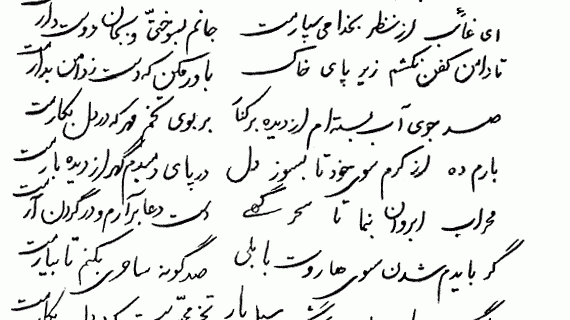 ای غائب از نظر بخدا می سپارمت جانم بسوختیّ و بجان دوست دارمت
تا دامن کفن نکشم زیر پای خاک باور مکن که دست ز دامن بدارمت
صد جوی آب بسته ام از دیده بر کنار بر بوی تخم مهر که در دل بکارمت
بارم ده از کرم سوی خود تا بسوز دل در پای دمبدم گهر از دیده بارمت
محراب ابروان بنما تا سحر گهی دست دعا برآرم و در گردن آرمت
گر بایدم شدن سوی هاروت بابلی صد گونه ساحری بکنم تا بیارمت